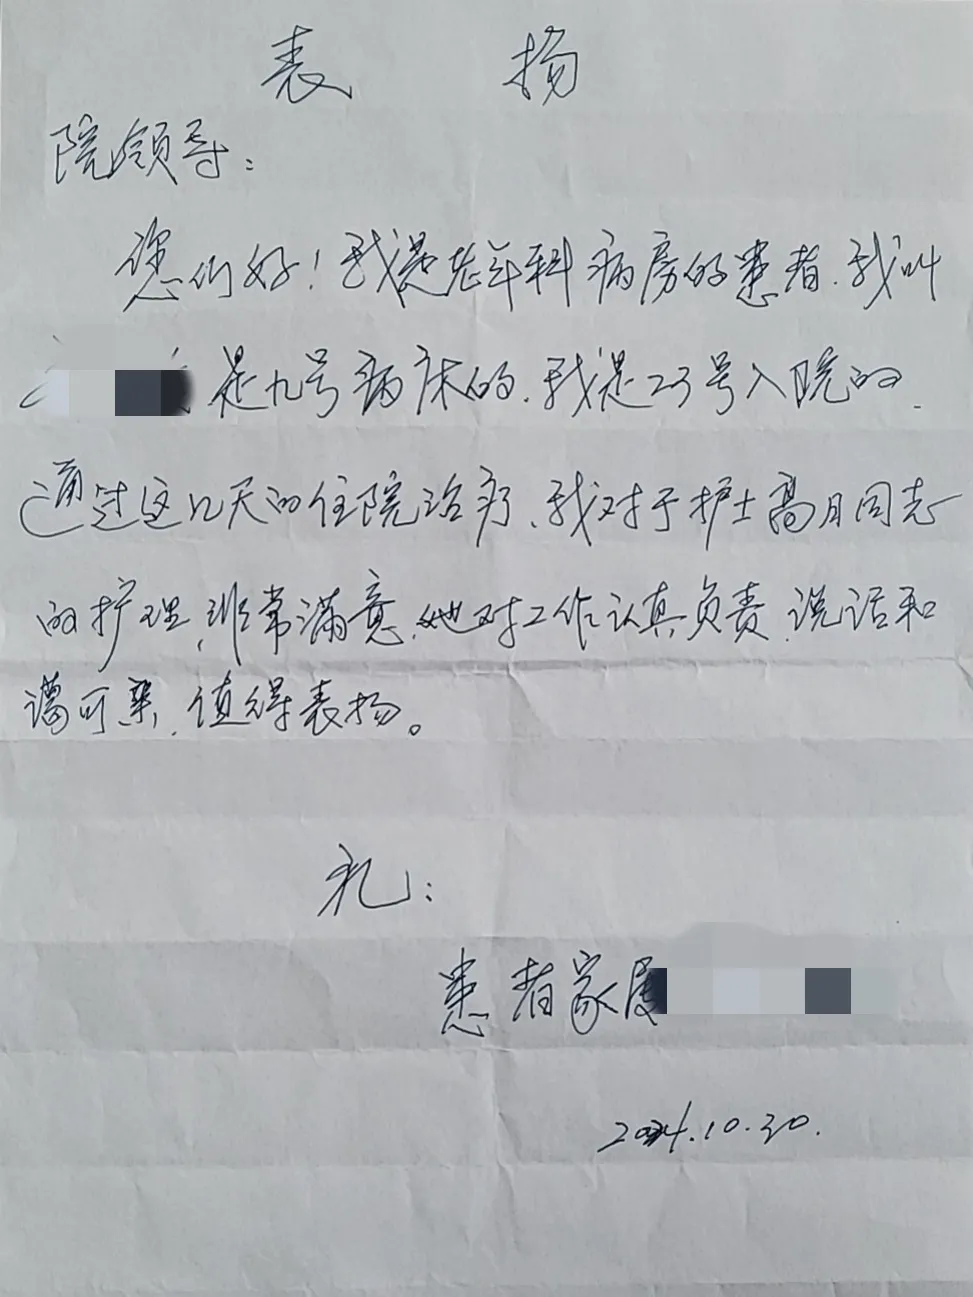 表 扬
院领导：
您们好！我是老年科病房的患者.我叫
是九号病床的.我是23号入院的.
通过这几天的住院治疗、我对于护士高月同志
的护理,非常满意.她对工作认真负责.说话和
蔼可亲.值得表扬。
礼：
患者家属
2024.10.30.